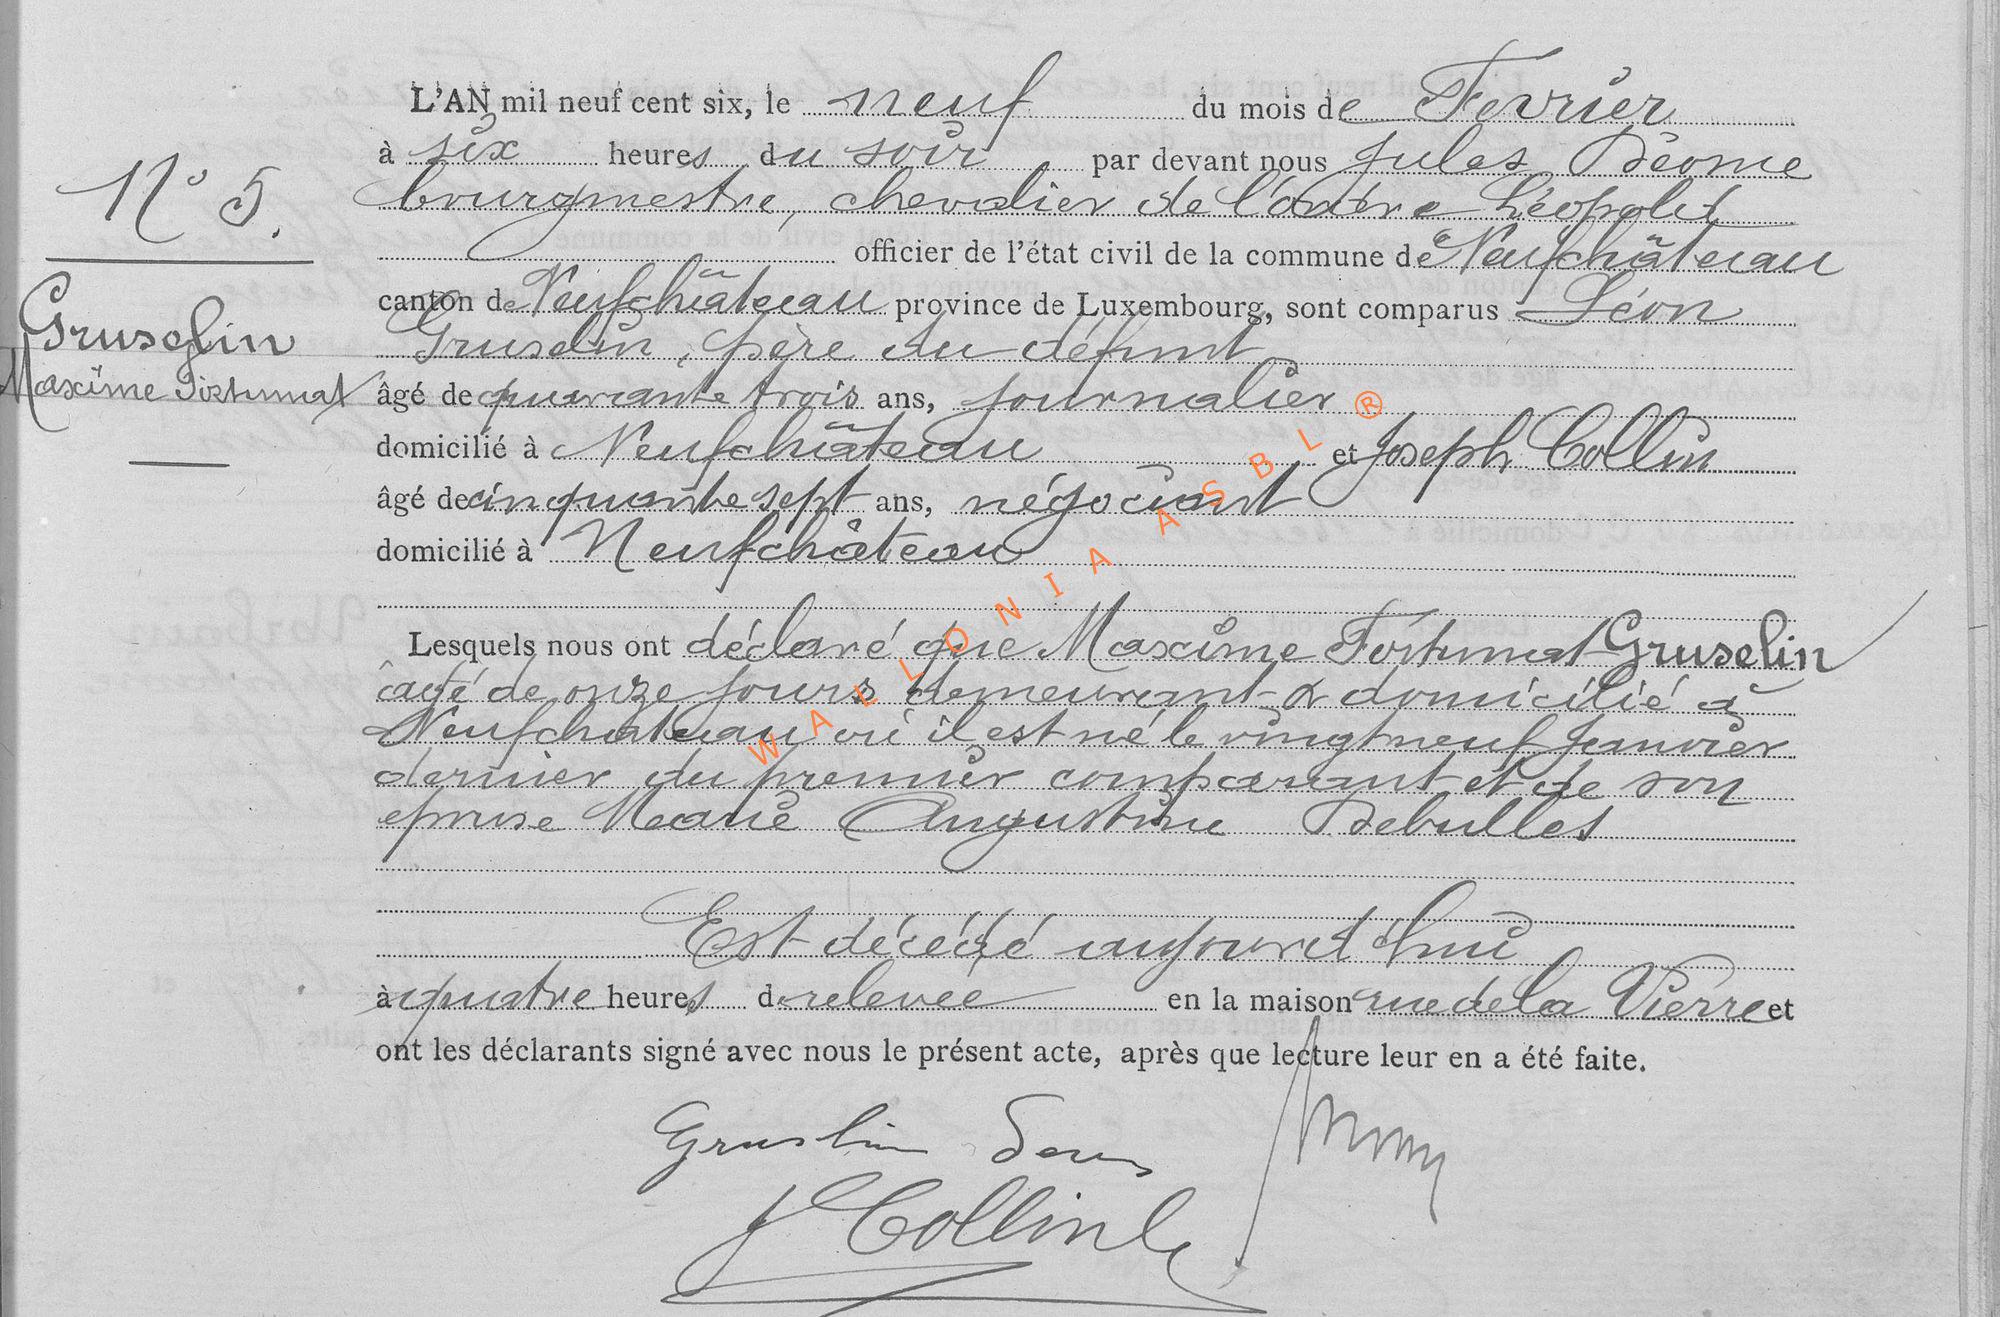 L'AN mil neuf cent six, le neuf du mois de Fevrier
à six heures du soir par devant nous Jules Déome
N° 5. bourgmestre, chevalier de l'ordre Léopold
officier de l'état civil de la commune de Neufchâteau
canton de Neufchâteau province de Luxembourg, sont comparus Léon
Gruselin Gruselin, père du défunt
Maxime Fortunat âgé de quarante trois ans, journalier
domicilié à Neufchâteau et Joseph Collin
âgé de cinquante sept ans, négociant
domicilié à Neufchâteau
Lesquels nous ont déclaré que Maxime Fortunat Gruselin
âgé de onze jours demeurant & domicilié à
Neufchateau où il est né le vingt neuf Janvier
dernier du premier comparant et de son
epouse Marie Augustine Debulles
Est décédé aujourd'hui
à quatre heures de relevee en la maison rue de la Vierre et
ont les déclarants signé avec nous le présent acte, après que lecture leur en a été faite.
Gruslin
J Collin
WALLONIA ASBL ®